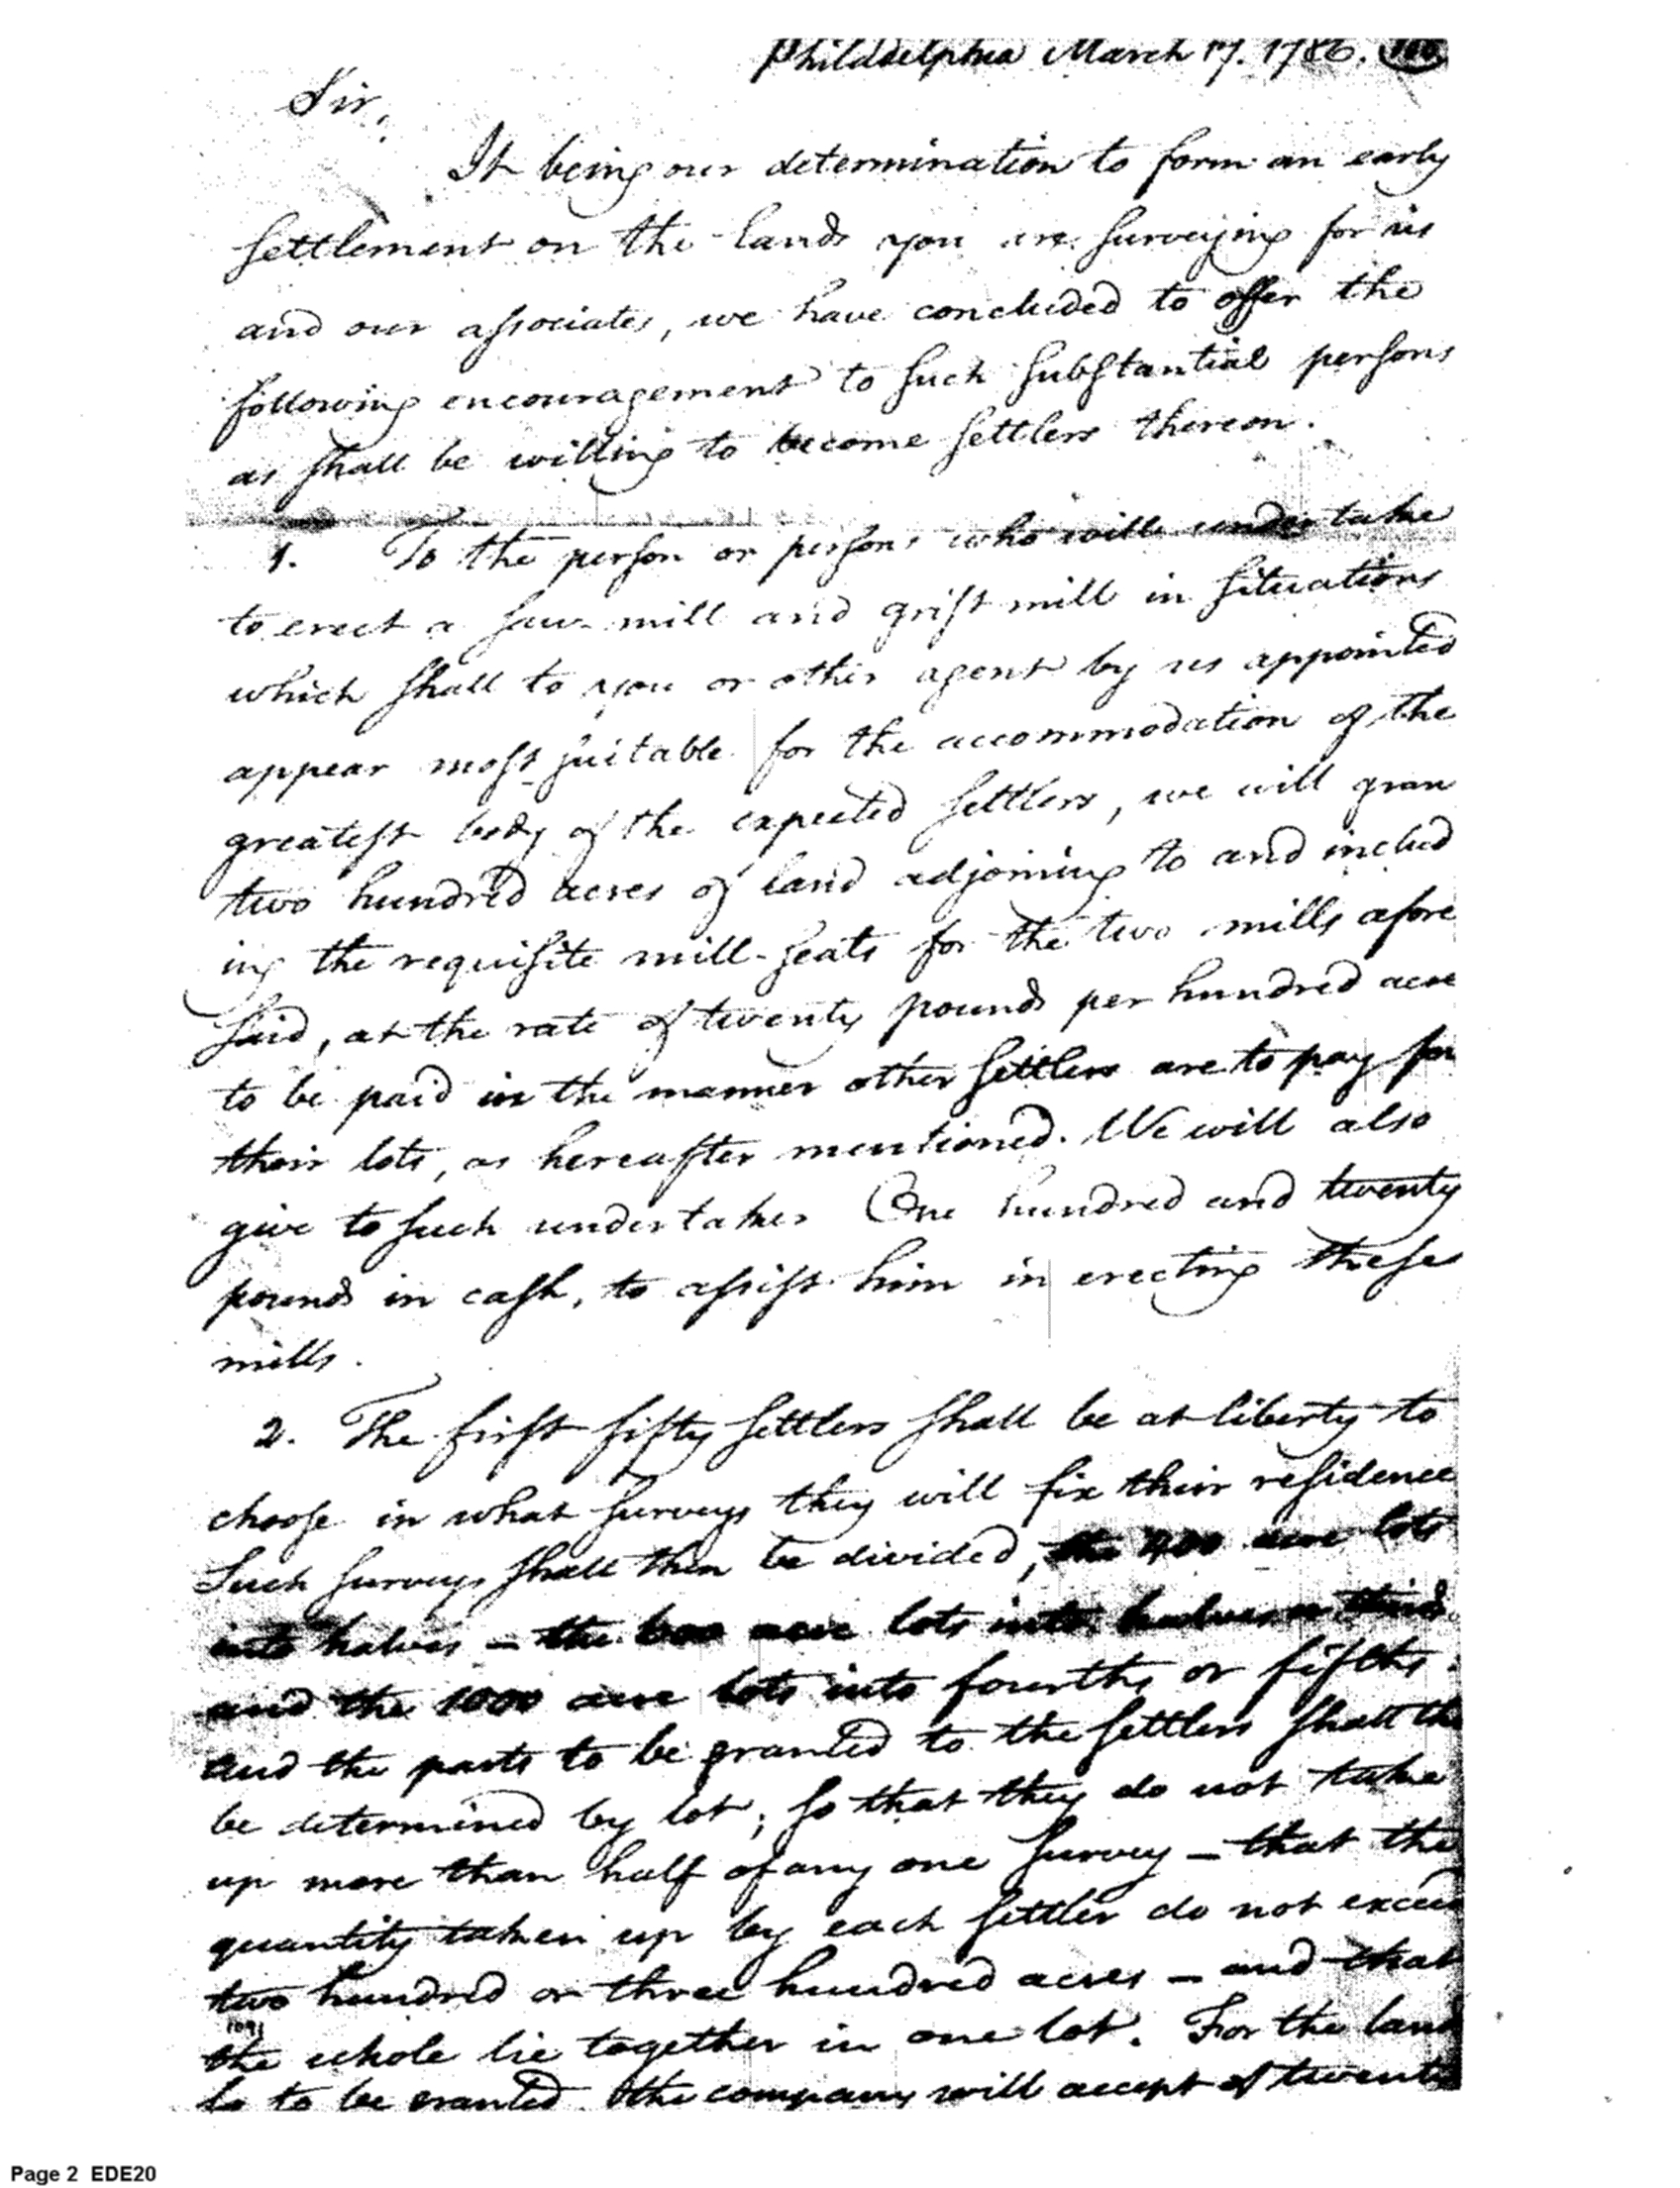 Philadelphia March 17. 1786.
Sir,
It being our determination to form an early
settlement on the lands you are surveying for us
and our associates, we have concluded to offer the
following encouragement to such substantial persons
as shall be willing to become settlers thereon.
1. To the person or persons who will undertake
to erect a saw-mill and grist mill in situations
which shall to you or other agent by us appointed
appear most suitable for the accommodation of the
greatest body of the expected settlers, we will gran
two hundred acres of land adjoining to and includ
ing the requisite mill-seats for the two mills afore
said, at the rate of twenty pounds per hundred acre
to be paid in the manner other settlers are to pay for
their lots, as hereafter mentioned. We will also
give to such undertaker One hundred and twenty
pounds in cash, to assist him in erecting these
mills.
2. The first fifty settlers shall be at liberty to
choose in what surveys they will fix their residence
Such surveys shall then be divided, the 400 acre lots
into halves - the 600 acre lots into halves or thirds
and the 1000 acre lots into fourths or fifths.
and the parts to be granted to the settlers shall th
be determined by lot; so that they do not take
up more than half of any one survey - that the
quantity taken up by each settler do not exceed
two hundred or three hundred acres - and that
1091
the whole lie together in one lot. For the land
so to be granted the company will accept of twenty
Page 2 EDE20